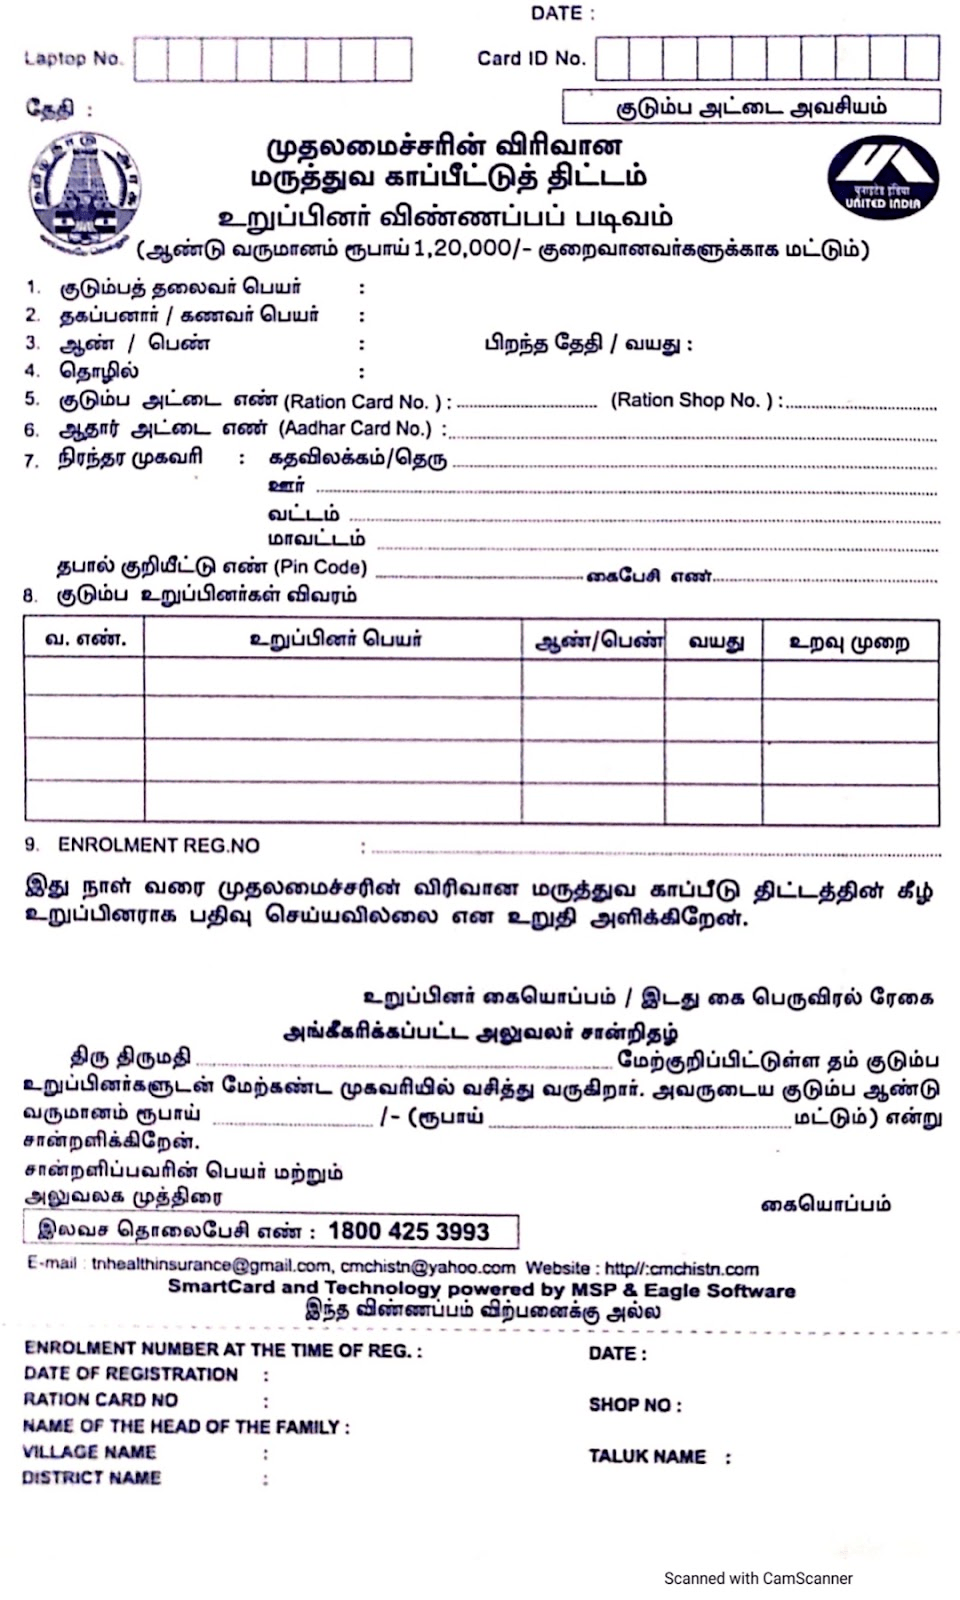 DATE :
Laptop No. Card ID No.
தேதி : குடும்ப அட்டை அவசியம்
முதலமைச்சரின் விரிவான
மருத்துவ காப்பீட்டுத் திட்டம்
உறுப்பினர் விண்ணப்பப் படிவம்
(ஆண்டு வருமானம் ரூபாய் 1,20,000/- குறைவானவர்களுக்காக மட்டும்)
यूनाइटेड इंडिया
UNITED INDIA
1. குடும்பத் தலைவர் பெயர் :
2. தகப்பனார் / கணவர் பெயர் :
3. ஆண் / பெண் : பிறந்த தேதி / வயது :
4. தொழில் :
5. குடும்ப அட்டை எண் (Ration Card No. ) : (Ration Shop No. ) :
6. ஆதார் அட்டை எண் (Aadhar Card No.) :
7. நிரந்தர முகவரி : கதவிலக்கம்/தெரு
ஊர்
வட்டம்
மாவட்டம்
தபால் குறியீட்டு எண் (Pin Code) கைபேசி எண்
8. குடும்ப உறுப்பினர்கள் விவரம்
வ. எண். உறுப்பினர் பெயர் ஆண்/பெண் வயது உறவு முறை
9. ENROLMENT REG.NO :
இது நாள் வரை முதலமைச்சரின் விரிவான மருத்துவ காப்பீடு திட்டத்தின் கீழ்
உறுப்பினராக பதிவு செய்யவில்லை என உறுதி அளிக்கிறேன்.
உறுப்பினர் கையொப்பம் / இடது கை பெருவிரல் ரேகை
அங்கீகரிக்கப்பட்ட அலுவலர் சான்றிதழ்
திரு திருமதி மேற்குறிப்பிட்டுள்ள தம் குடும்ப
உறுப்பினர்களுடன் மேற்கண்ட முகவரியில் வசித்து வருகிறார். அவருடைய குடும்ப ஆண்டு
வருமானம் ரூபாய் /- (ரூபாய் மட்டும்) என்று
சான்றளிக்கிறேன்.
சான்றளிப்பவரின் பெயர் மற்றும்
அலுவலக முத்திரை கையொப்பம்
இலவச தொலைபேசி எண் : 1800 425 3993
E-mail : tnhealthinsurance@gmail.com, cmchistn@yahoo.com Website : http//:cmchistn.com
SmartCard and Technology powered by MSP & Eagle Software
இந்த விண்ணப்பம் விற்பனைக்கு அல்ல
ENROLMENT NUMBER AT THE TIME OF REG. : DATE :
DATE OF REGISTRATION :
RATION CARD NO : SHOP NO :
NAME OF THE HEAD OF THE FAMILY :
VILLAGE NAME : TALUK NAME :
DISTRICT NAME :
Scanned with CamScanner